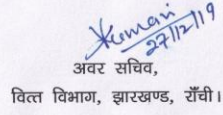 Kumari
27/12/19
अवर सचिव,
वित्त विभाग, झारखण्ड, राँची।